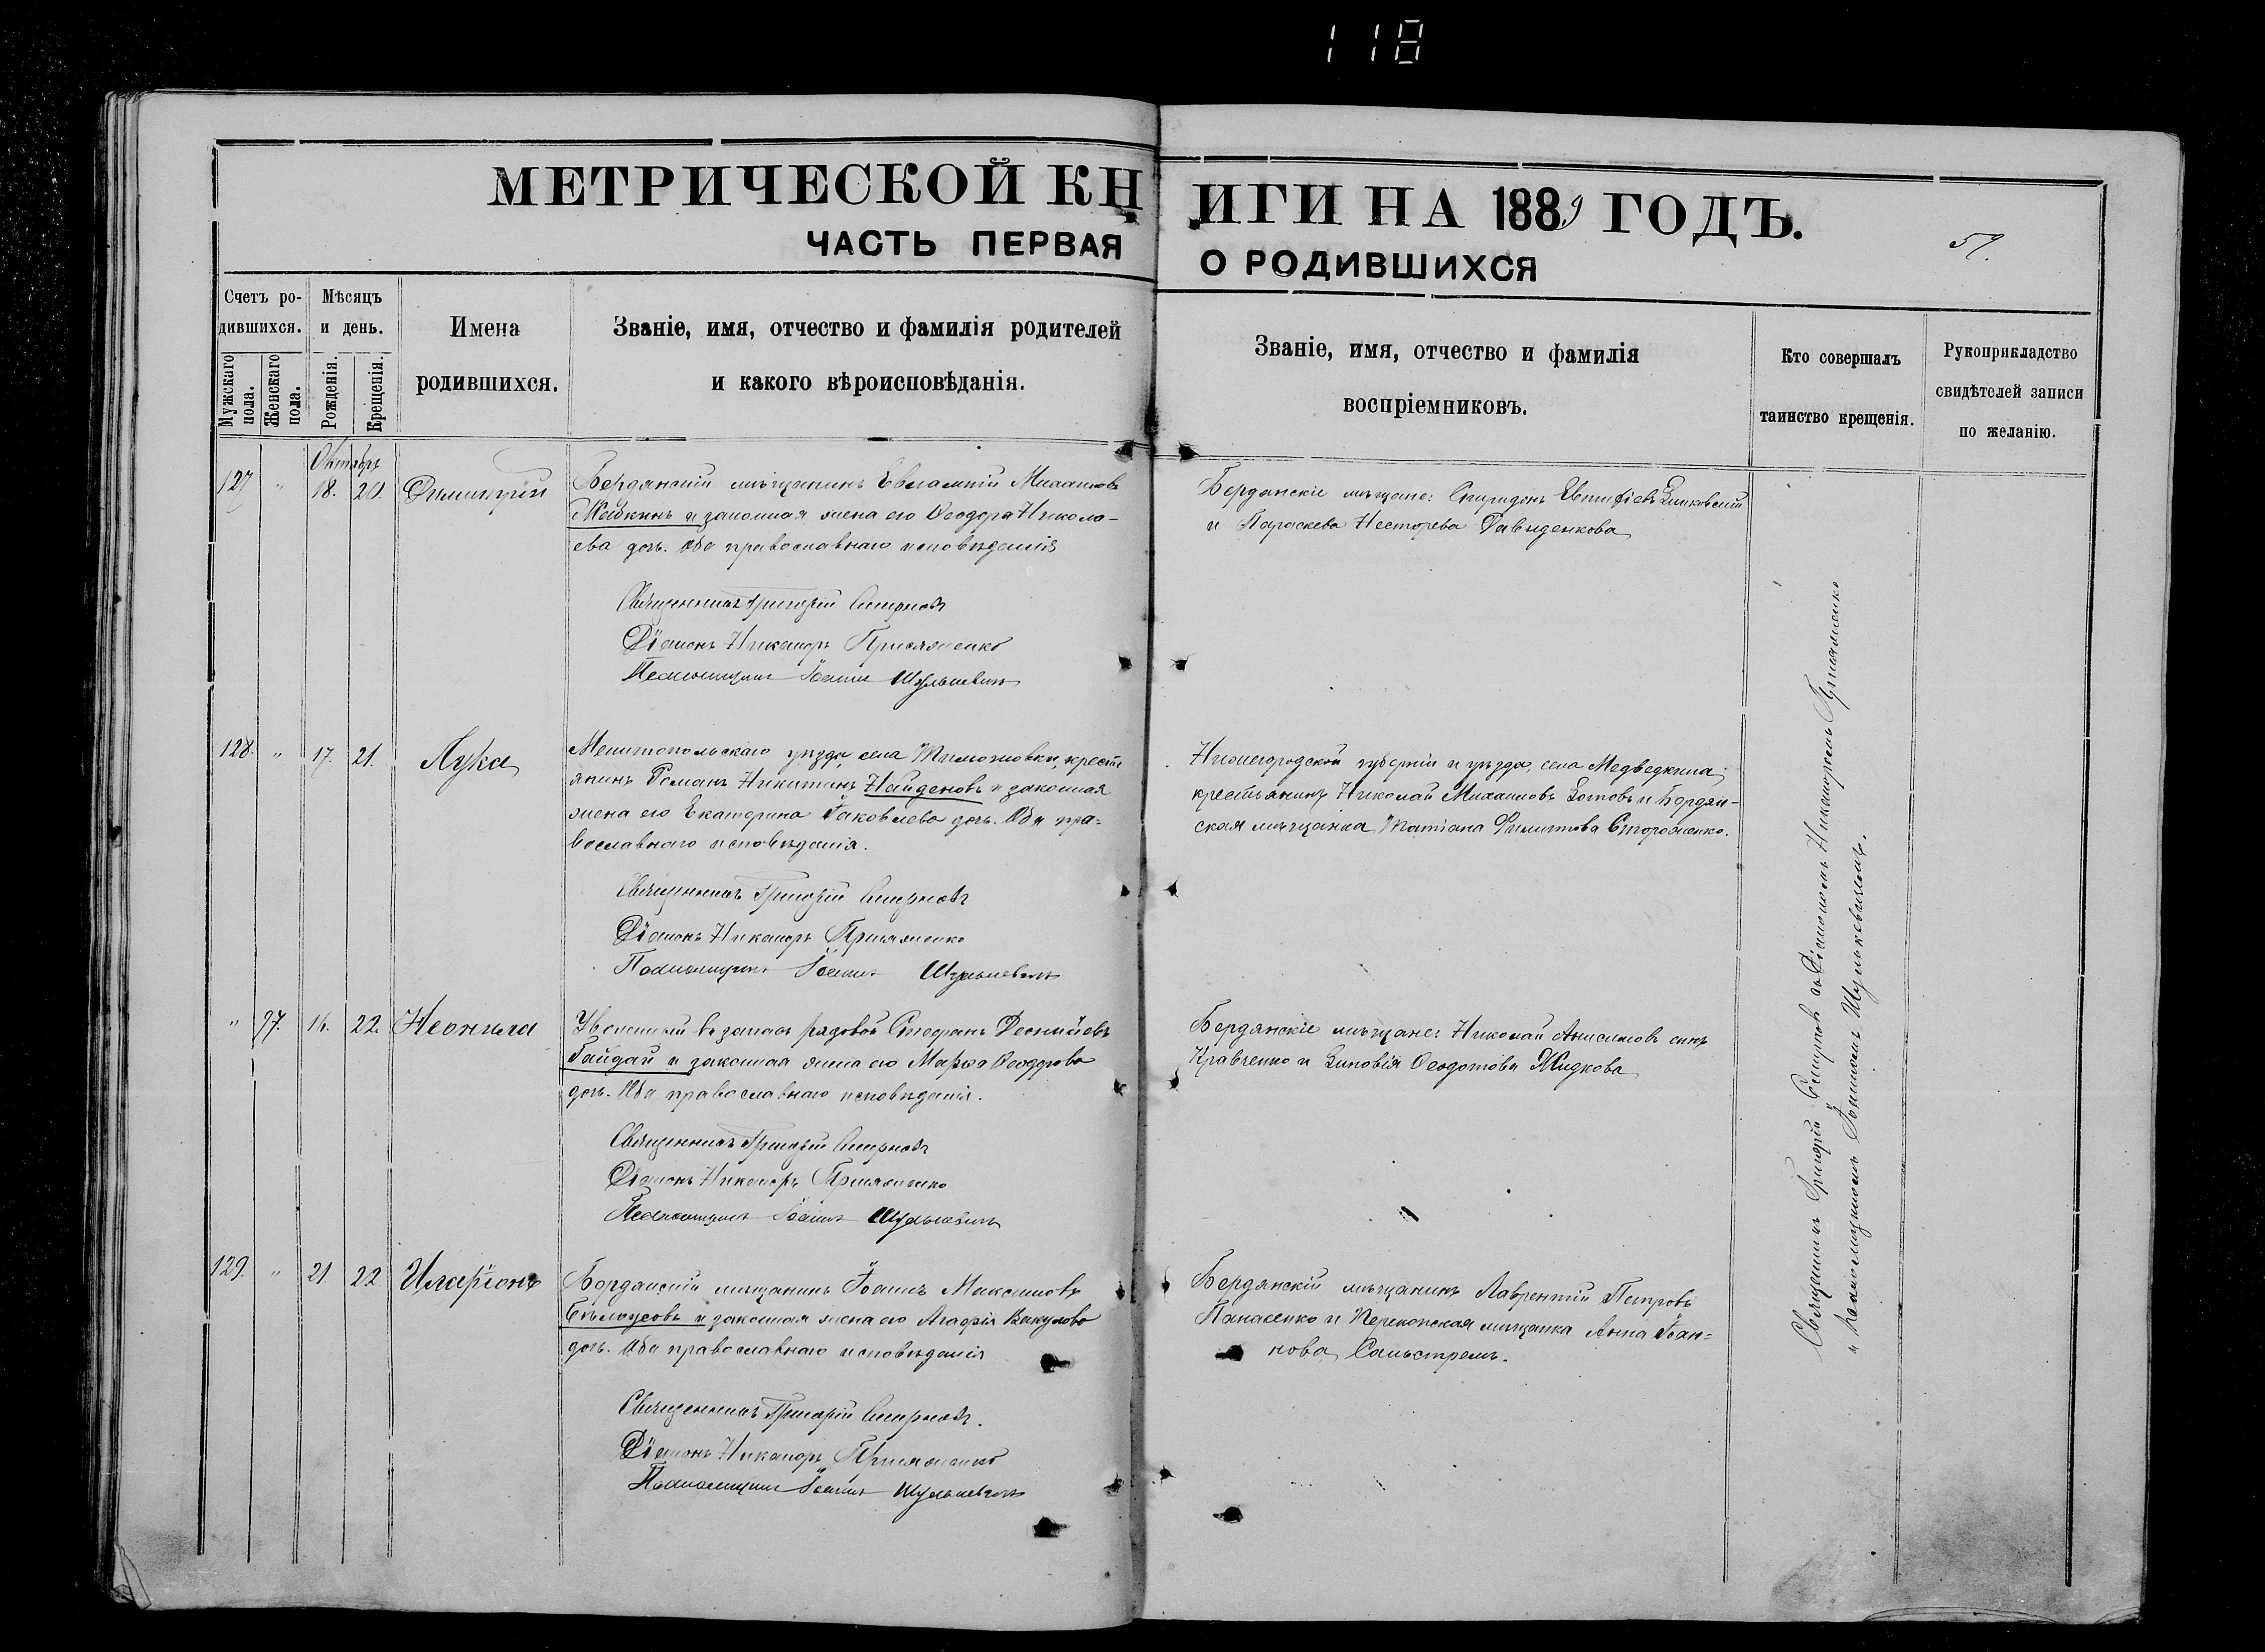 118
МЕТРИЧЕСКОЙ КНИГИ НА 1889 ГОДЪ.
ЧАСТЬ ПЕРВАЯ О РОДИВШИХСЯ
57.
Счетъ ро-
дившихся.
Мужскаго пола.
Женскаго пола.
Мѣсяцъ
и день.
Рожденія.
Крещенія.
Имена
родившихся.
Званіе, имя, отчество и фамилія родителей
и какого вѣроисповѣданія.
Званіе, имя, отчество и фамилія
воспріемниковъ.
Кто совершалъ
таинство крещенія.
Рукоприкладство
свидѣтелей записи
по желанію.
Октябрь
127 " 18. 20. Димитрій
Бердянскій мѣщанинъ Евлампій Михаиловъ
и законная жена его Ѳеодора Никола-
ева дочь. Оба православнаго исповѣданія
Священникъ Григорій Смирновъ
Діаконъ Никаноръ Присяженко
Псаломщикъ Іоаннъ Шулькевичъ
Бердянскіе мѣщане: Спиридонъ Евтифіевъ
и Параскева Несторева Давиденкова
128. " 17. 21. Лука
Мелитопольскаго уѣзда, села Тимошовки, кресть
янинъ Романъ Никитинъ Найденовъ и законная
жена его Екатерина Іаковлева дочь. Оба пра-
вославнаго исповѣданія.
Священникъ Григорій Смирновъ
Діаконъ Никаноръ Присяженко
Псаломщикъ Іоаннъ Шулькевичъ
Нижегородской губерніи и уѣзда, села Медведкина,
крестьянинъ Николай Михаиловъ Зотовъ и Бердян-
ская мѣщанка Татіана Филиппова Стороженко.
" 97. 16. 22. Неонила
Уволенный въ запасъ рядовой Стефанъ Леонтіевъ
Гайдай и законная жена его Марѳа Ѳеодорова
дочь. Оба православнаго исповѣданія.
Священникъ Григорій Смирновъ
Діаконъ Никаноръ Присяженко
Псаломщикъ Іоаннъ Шулькевичъ
Бердянскіе мѣщане: Николай Анисимовъ сынъ
Кравченко и Зиновія Ѳеодотова Жидкова
129. " 21 22 Иларіонъ
Бердянскій мѣщанинъ Іоаннъ Максимовъ
Бѣлоусовъ и законная жена его Агафія Вакулова
дочь. Оба православнаго исповѣданія
Священникъ Григорій Смирновъ.
Діаконъ Никаноръ Присяженко
Псаломщикъ Іоаннъ Шулькевичъ
Бердянскій мѣщанинъ Лаврентій Петровъ
Панасенко и Перекопская мѣщанка Анна Іоан-
нова
Священникъ Григорій Смирновъ съ Діакономъ Никаноромъ Присяженко
и псаломщикомъ Іоанномъ Шулькевичемъ.